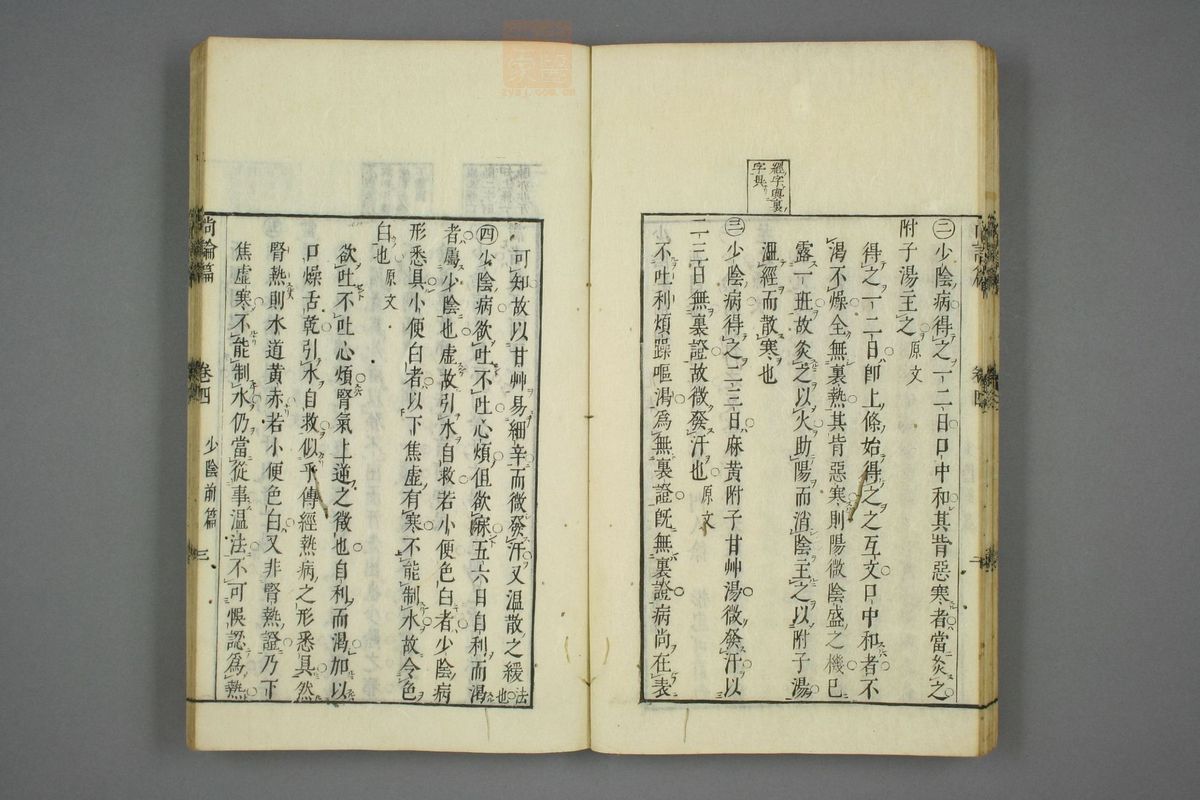 ㊁少陰病得之一二日口中和其背惡寒者當灸之
附子湯主之 原文
得之一二日卽上條始得之之互文口中和者不
渴不燥全無裏熱其背惡寒則陽微陰盛之機已
露一班故灸之以火助陽而消陰主之以附子湯
溫經而散寒也
㊂少陰病得之二三日麻黃附子甘艸湯微發汗以
二三日無裏證故微發汗也 原文
不吐利煩躁嘔渴爲無裏證旣無裏證病尚在表
經字與裏
字異
可知故以甘艸易細辛而微發汗又溫散之緩法也
㊃少陰病欲吐不吐心煩但欲寐五六日自利而渴
者屬少陰也虛故引水自救若小便色白者少陰病
形悉具小便白者以下焦虛有寒不能制水故令色
白也 原文
欲吐不吐心煩腎氣上逆之徵也自利而渴加以
口燥舌乾引水自救似乎傳經熱病之形悉具然
腎熱則水道黃赤若小便色白又非腎熱證乃下
焦虛寒不能制水仍當從事溫法不可悞認爲熱
尚論篇 卷四 少陰前篇 三